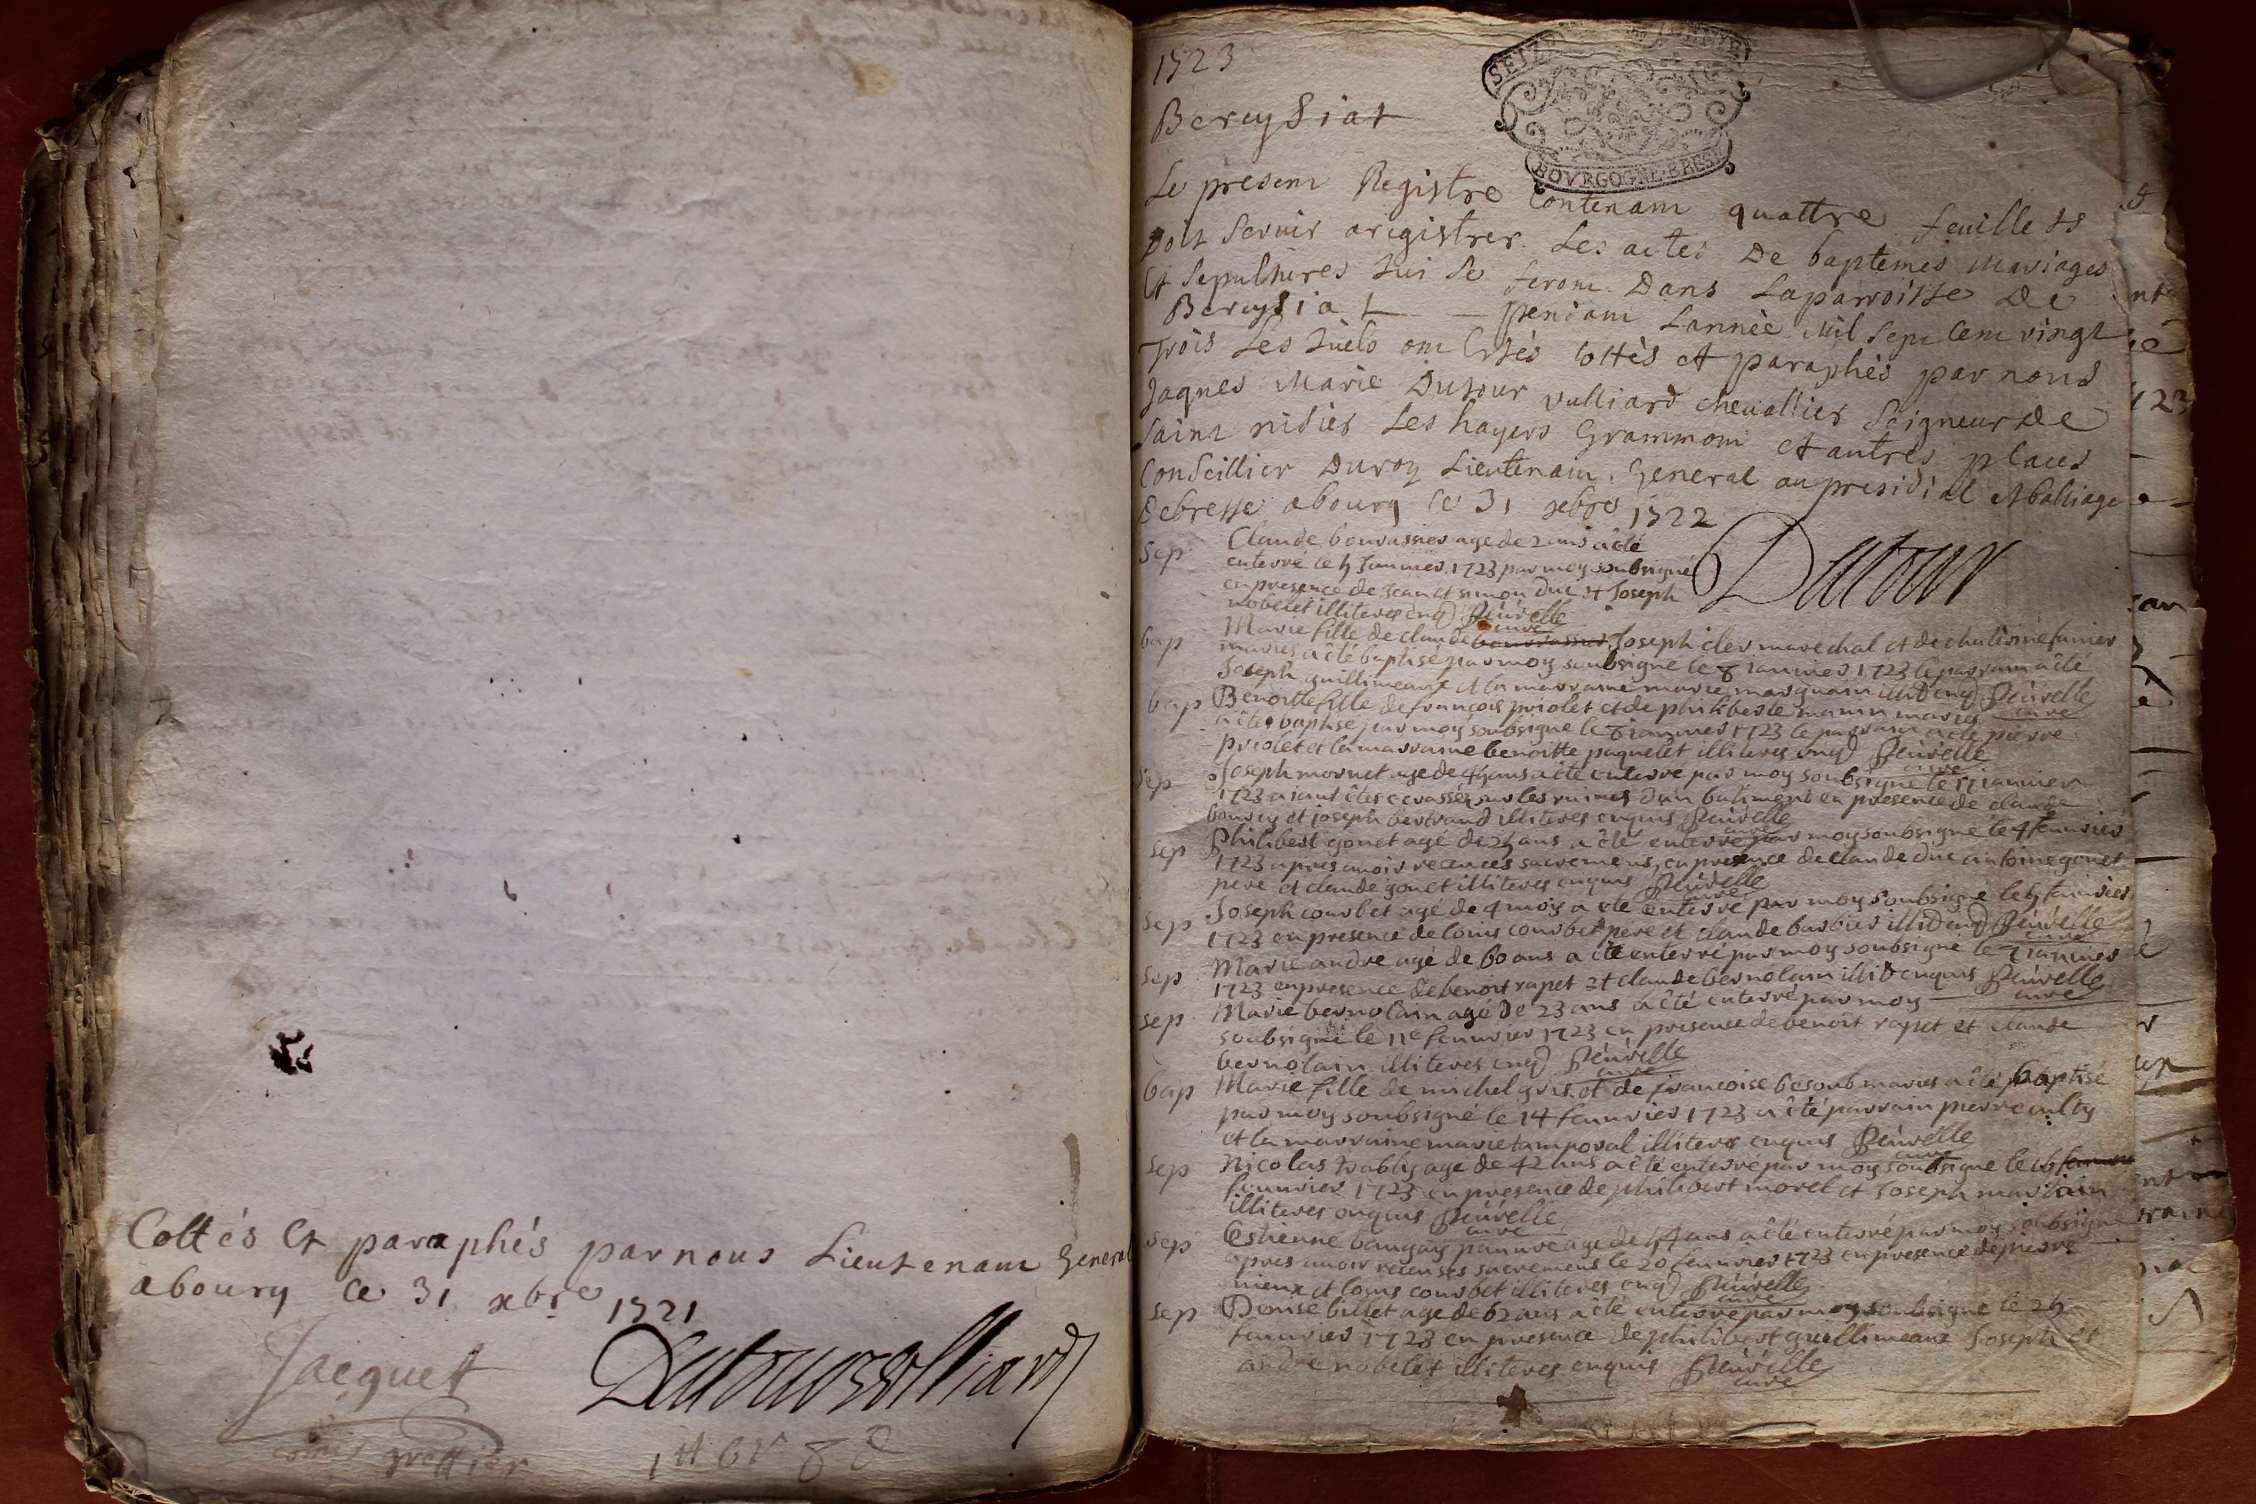 Cottés Et paraphés par nous Lieutenant General
a bourg Ce 31 xbre 1721
Jacquet
commis greffier
Dutour vulliard
1723
Bereysiat
SEIZE
BOVRGOGNE BRESSE
Le present Registre Contenant quattre feuillets
Doit Servir a registrer Les actes De baptemes Mariages
Et Sepultures qui Se feront Dans La parroisse De
Bereysiat pendant Lannée Mil Sept Cent vingt
Trois Les quels ont Estés Cottés et paraphés par nous
Jaques Marie Dutour vulliard chevallier Seigneur De
Saint nisier Les hayers Grammont et autres places
Conseillier Du roy Lieutenant General au presidial et balliage
De bresse a bourg Ce 31 xbre 1722
Dutour
sep Claude bouvassier agé de 2 ans a été
enterré le 5 Janvier 1723 par moy soubsigné
en presence de Jean et simon Duc et Joseph
nobelet illiteres enq
curé
bap Marie fille de claude Joseph cler marechal et de
mariés a été baptisé par moy soubsigné le 8 ianvier 1723 le parrain a été
Joseph guillimeaux et la marraine marie
curé
bap Benoitte fille de francois priolet et de philiberte manin mariés
a été baptisé par moy soubsigné le ianvier 1723 le parrain a été pierre
priolet et la marraine benoitte paquelet illiteres enq
curé
sep Joseph mornet agé de ans a été enterré par moy soubsigné le ianvier
1723 aiant été ecrassé sur les ruines dun batiment en presence de claude
bouvey et joseph bertrand illiteres enquis
curé
sep Philibert gonet agé de 25 ans a été enterré par moy soubsigné le 4 feuvrier
1723 apres avoir receu ces sacremens en presence de claude duc antoine gonet
pere et claude gonet illiteres enquis
curé
sep Joseph courbet agé de 4 mois a été enterré par moy soubsigné le 5 feuvrier
1723 en presence de louis courbet pere et claude barbier illit enq
curé
sep Marie andre agé de 60 ans a été enterré par moy soubsigné le
1723 en presence de benoit rapet et claude bernolain illit enquis
curé
sep Marie bernolain agé de 23 ans a été enterré par moy
soubsigné le 11e feuvrier 1723 en presence de benoit rapet et claude
bernolain illiteres enq
curé
bap Marie fille de michel gris et de francoise besoub mariés a été baptisé
par moy soubsigné le 14 feuvrier 1723 a été parrain pierre
et la marraine marie temporal illiteres enquis
curé
sep Nicolas agé de 42 ans a été enterré par moy soubsigné le 16
feuvrier 1723 en presence de philibert morel et Joseph
illiteres enquis
curé
sep Estienne pauvre agé de ans a été enterré par moy soubsigné
apres avoir receu ses sacremens le 20 feuvrier 1723 en presence de pierre
nieux et louis courbet illiteres enq
curé
sep Denise billet agé de 62 ans a été enterré par moy soubsigné le 25
feuvrier 1723 en presence de philibert guillimeaux Joseph et
andre nobelet illiteres enquis
curé